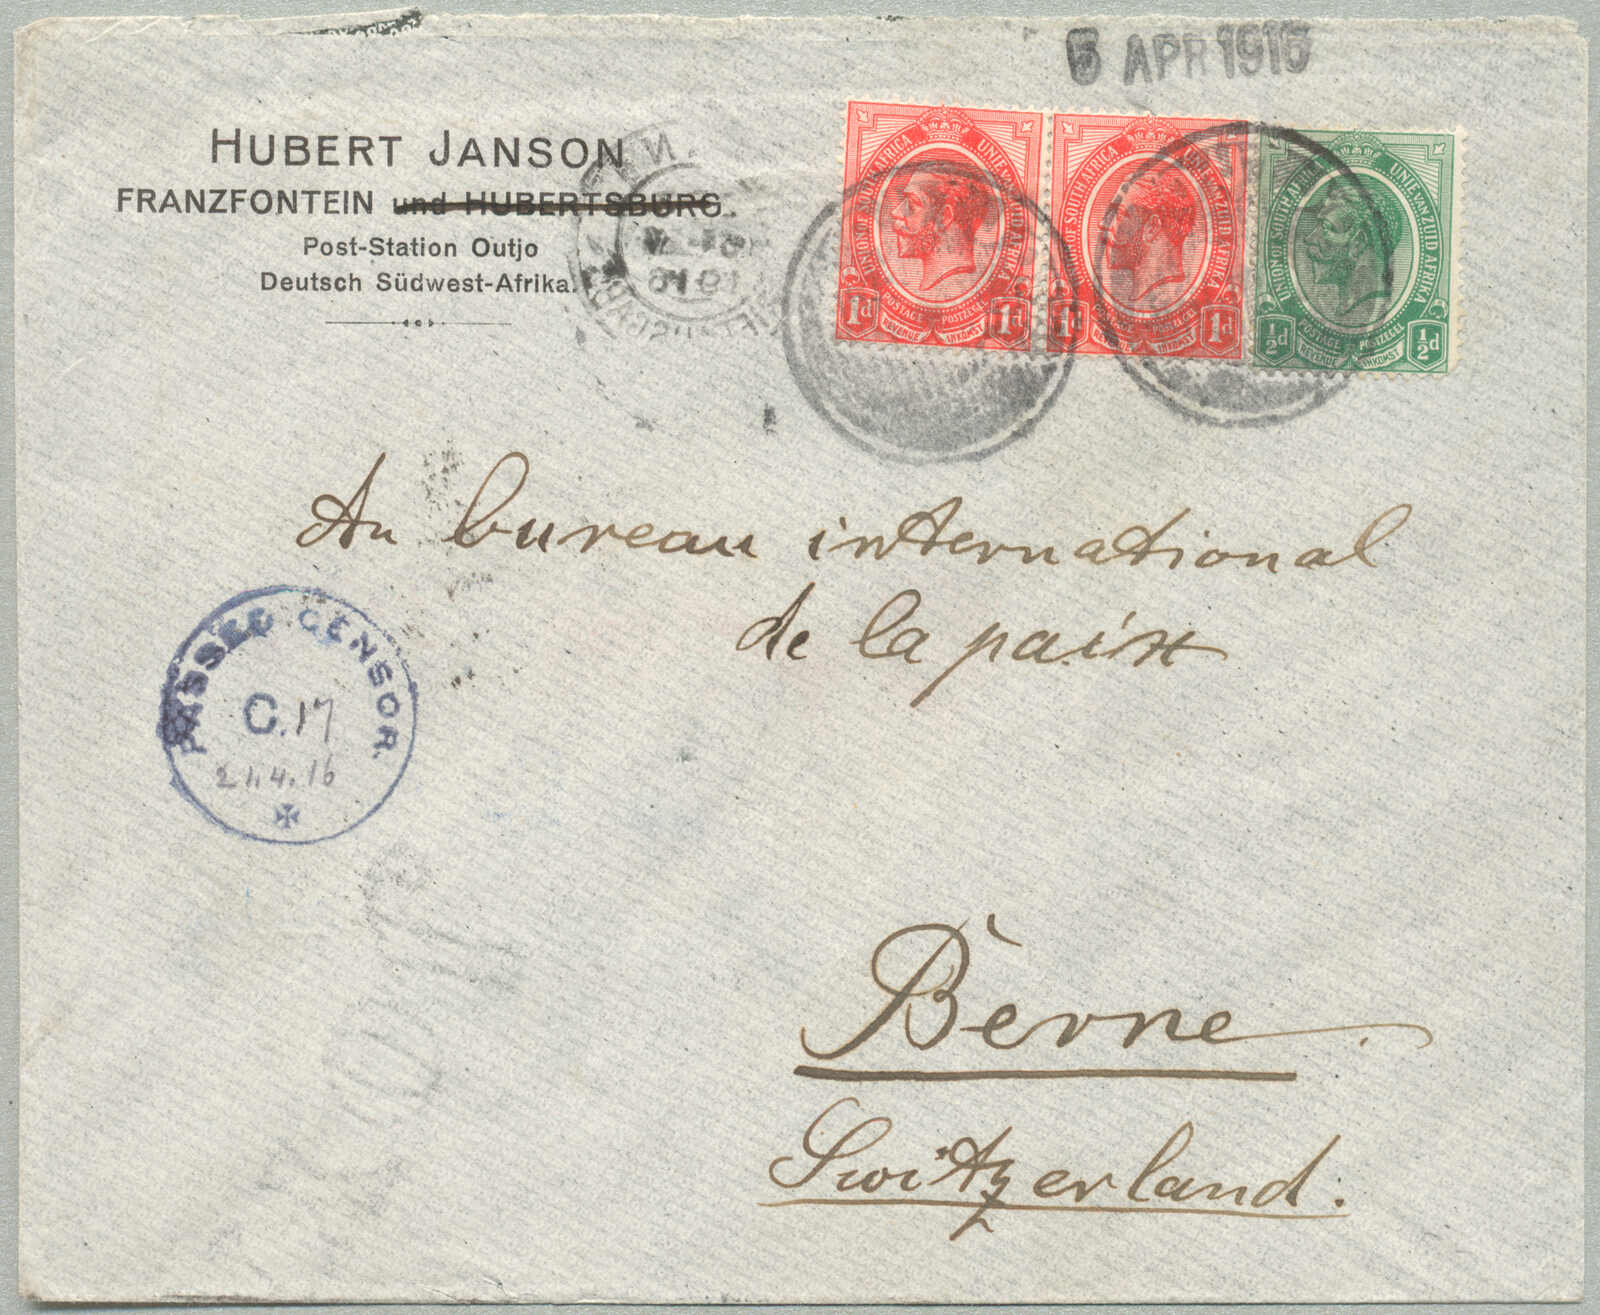 5 APR 1916
HUBERT JANSON
FRANZFONTEIN und HUBERTSBURG.
Post-Station Outjo
Deutsch Südwest-Afrika.
UNION OF SOUTH AFRICA UNIE VAN ZUID AFRIKA
1d POSTAGE POSTZEGEL 1d
REVENUE INKOMST
UNION OF SOUTH AFRICA UNIE VAN ZUID AFRIKA
1d POSTAGE POSTZEGEL 1d
REVENUE INKOMST
UNION OF SOUTH AFRICA UNIE VAN ZUID AFRIKA
½d POSTAGE POSTZEGEL ½d
REVENUE INKOMST
Au bureau international
de la paix
PASSED CENSOR
C.17
21.4.16
Berne.
Switzerland.